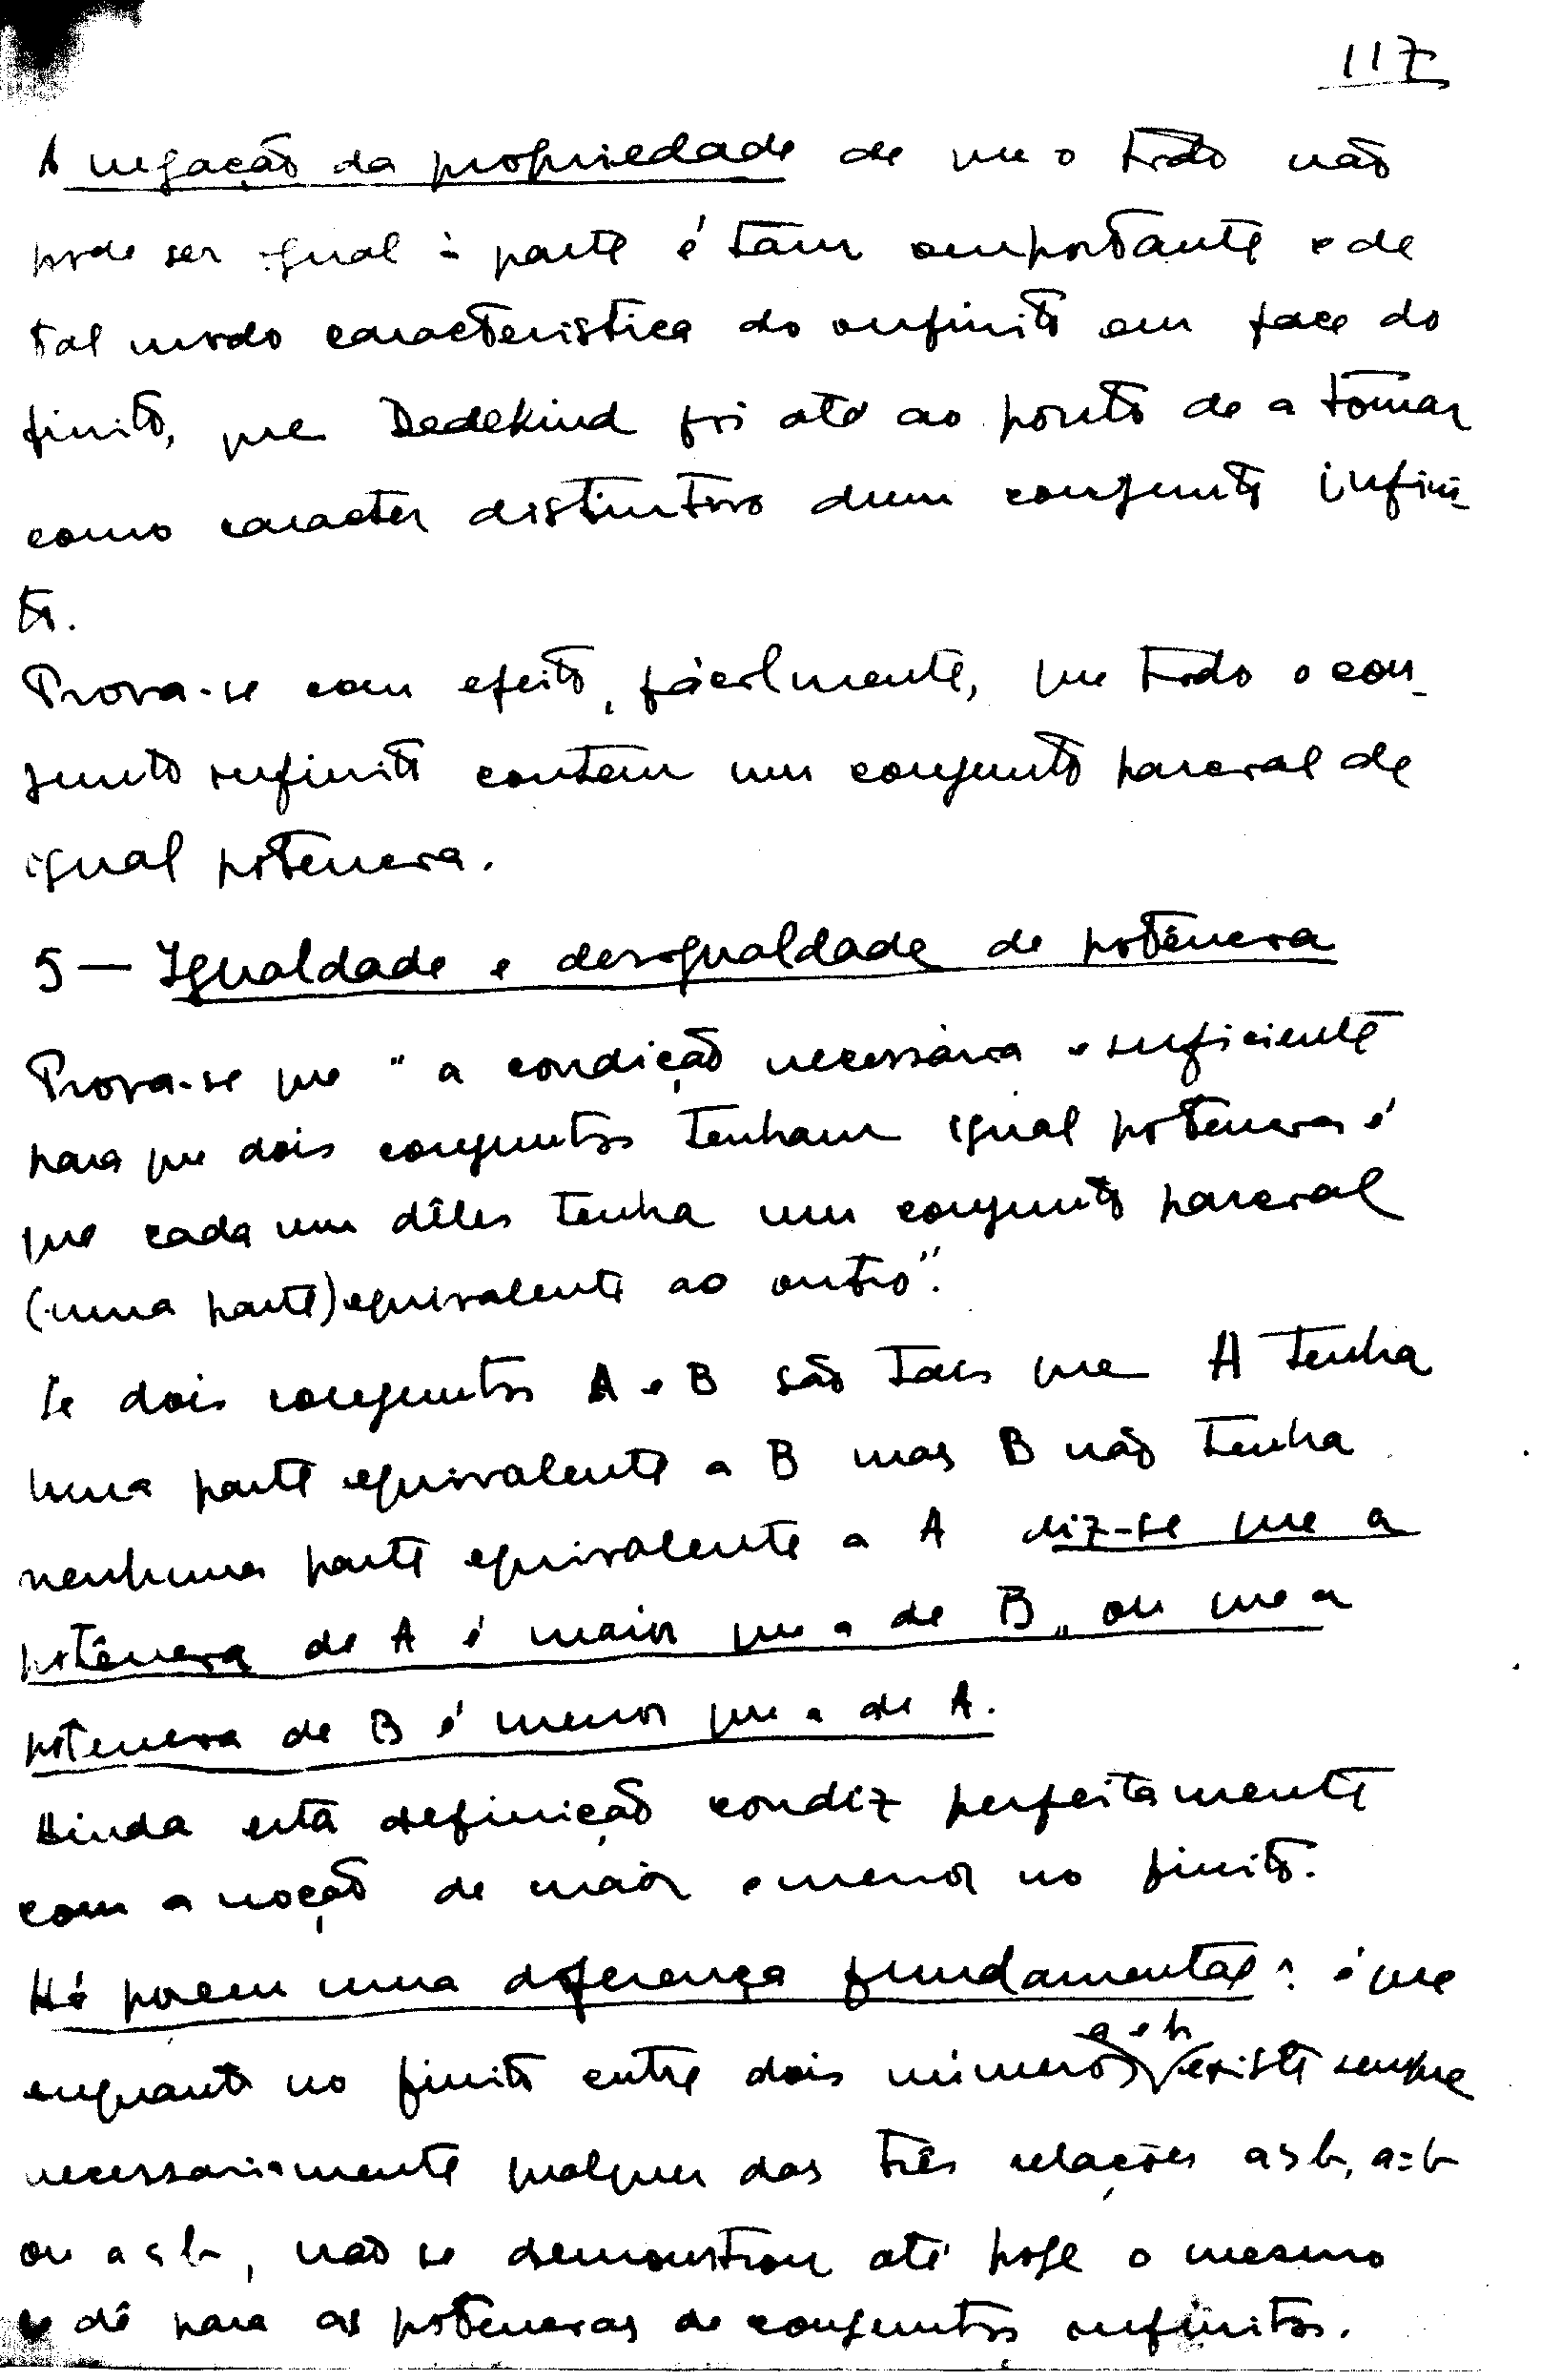 117
A negação da propriedade de que o todo não
pode ser igual à parte é tam importante e de
tal modo caracteristica do infinito em face do
finito, que Dedekind foi até ao ponto de a tomar
como caracter distintivo dum conjunto infini-
to.
Prova-se com efeito, fácilmente, que todo o con-
junto infinito contem um conjunto parcial de
igual potencia.
5 — Igualdade e desigualdade de potência
Prova-se que "a condição necessária e suficiente
para que dois conjuntos tenham igual potencia é
que cada um dêles tenha um conjunto parcial
(uma parte) equivalente ao outro".
Se dois conjuntos A e B são tais que A tenha
uma parte equivalente a B mas B não tenha
nenhuma parte equivalente a A diz-se que a
potência de A é maior que a de B,, ou que a
potencia de B é menor que a de A.
Ainda esta definição condiz perfeitamente
com a noção de maior e menor no finito.
Há porem uma diferença fundamental: é que
enquanto no finito entre dois números a e b existe sempre
necessariamente qualquer das três relações a>b, a=b
ou a<b, não se demonstrou até hoje o mesmo
dê para as potencias de conjuntos infinitos.